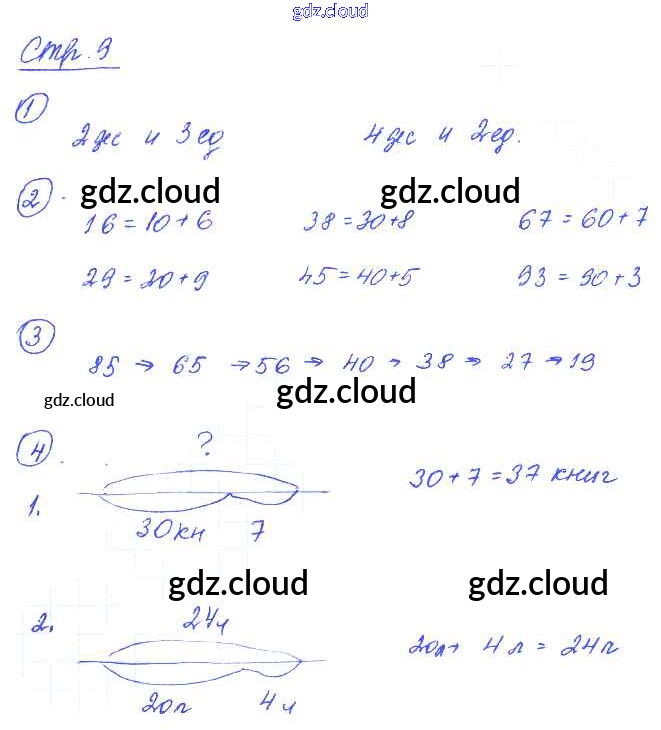 gdz.cloud
Стр. 9
1
2 дес и 3 ед 4 дес и 2 ед.
2
gdz.cloud gdz.cloud
16 = 10 + 6 38 = 30 + 8 67 = 60 + 7
29 = 20 + 9 45 = 40 + 5 93 = 90 + 3
3
85 → 65 → 56 → 40 → 38 → 27 → 19
gdz.cloud gdz.cloud
4
?
1. 30 + 7 = 37 книг
30 кн 7
gdz.cloud gdz.cloud
24 л
2. 20 л + 4 л = 24 л
20 л 4 л